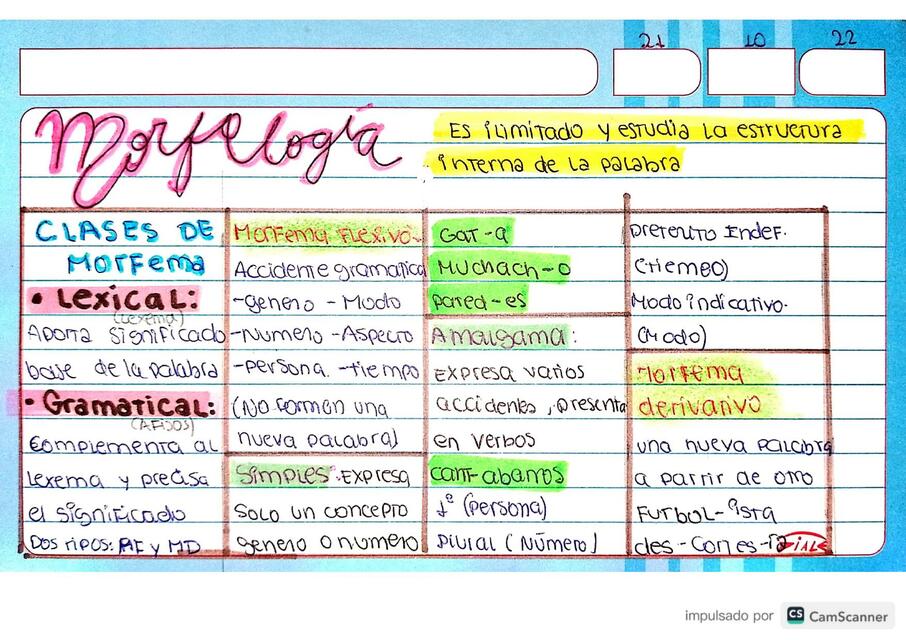 21 10 22
Morfología
Es ilimitado y estudia la estructura
interna de la palabra
CLASES DE
MORFEMA
• Lexical:
(lexema)
Aporta significado
base de la palabra
• Gramatical:
(AFIJOS)
Complementa al
lexema y precisa
el significado
Dos tipos: MF y MD
Morfema Flexivo
Accidente gramatical
-genero - Modo
-Numero -Aspecto
-persona. -tiempo
(No forman una
nueva palabra)
Simples: Expresa
solo un concepto
genero o numero
Gat-a
Muchach-o
pared-es
Amalgama:
Expresa varios
accidentes, presenta
en verbos
cant-abamos
1º (persona)
Plural (Número)
preterito Indef.
(tiempo)
Modo indicativo.
(Modo)
Morfema
derivativo
una nueva palabra
a partir de otro
FUTBOL-ista
des-Cortes-ía
impulsado por CS CamScanner